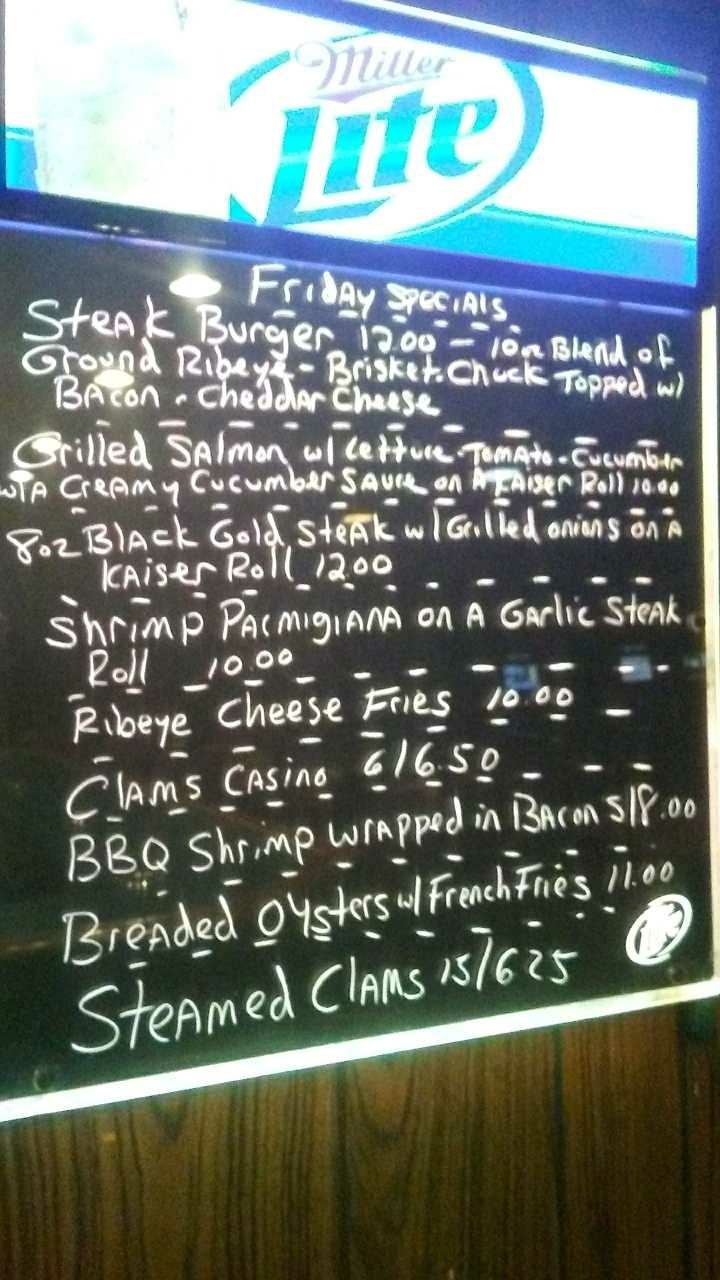 Miller
Lite
Friday Specials
Steak Burger 12.00 - 10oz Blend of
Ground Ribeye - Brisket. Chuck Topped w/
Bacon - Cheddar Cheese
Grilled Salmon w/ Lettuce - Tomato - Cucumber
w/A Creamy Cucumber Sauce on A Kaiser Roll 10.00
8oz Black Gold Steak w/ Grilled onions on A
Kaiser Roll 12.00
Shrimp Parmigiana on A Garlic Steak
Roll 10.00
Ribeye Cheese Fries 10.00
Clams Casino 6/6.50
BBQ Shrimp Wrapped in Bacon 5/8.00
Breaded Oysters w/ French Fries 11.00
Lite
Steamed Clams 15/6 25